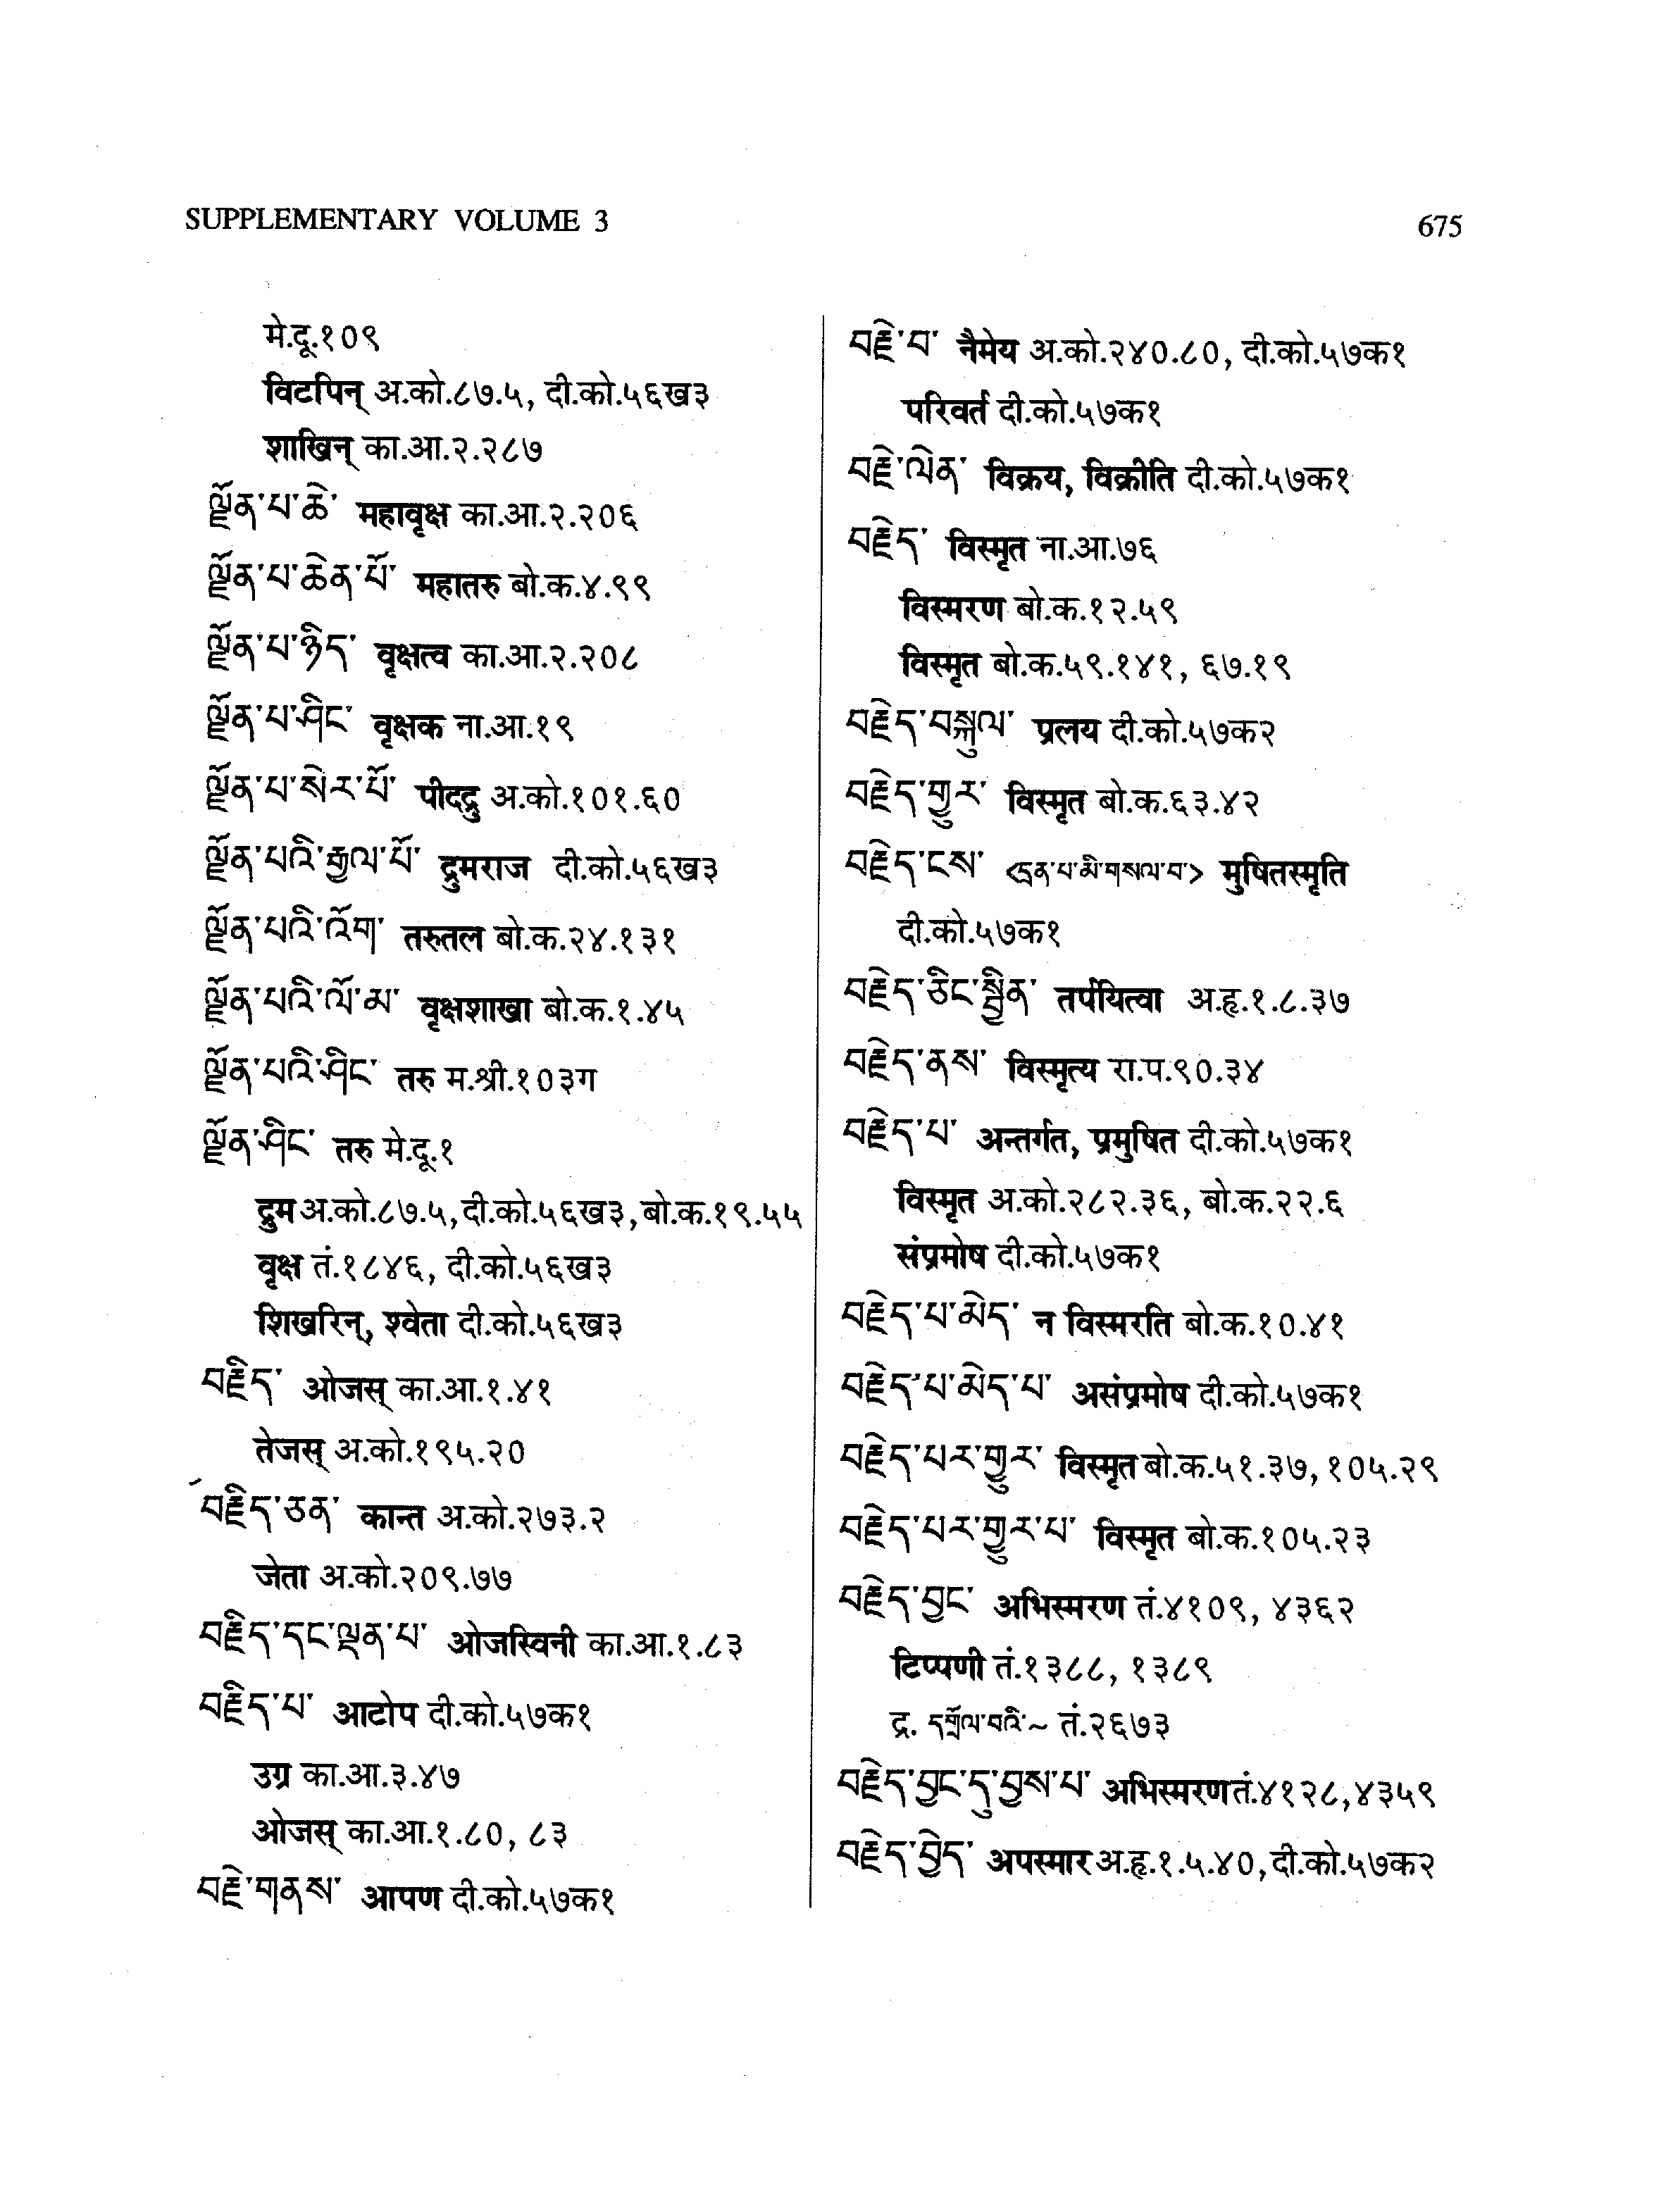 SUPPLEMENTARY VOLUME 3
675
मे.दू.१०९
विटपिन् अ.को.८७.५, दी.को.५६ख३
शाखिन् का.आ.२.२८७
ལྗོན་པ་ཆེ་ महावृक्ष का.आ.२.२०६
ལྗོན་པ་ཆེན་པོ་ महातरु बो.क.४.९९
ལྗོན་པ་ཉིད་ वृक्षत्व का.आ.२.२०८
ལྗོན་པ་ཤིང་ वृक्षक ना.आ.१९
ལྗོན་པ་སེར་པོ་ पीतद्रु अ.को.१०१.६०
ལྗོན་པའི་རྒྱལ་པོ་ द्रुमराज दी.को.५६ख३
ལྗོན་པའི་འོག་ तरुतल बो.क.२४.१३१
ལྗོན་པའི་ལོ་མ་ वृक्षशाखा बो.क.१.४५
ལྗོན་པའི་ཤིང་ तरु म.श्री.१०३ग
ལྗོན་ཤིང་ तरु मे.दू.१
द्रुम अ.को.८७.५, दी.को.५६ख३, बो.क.१९.५५
वृक्ष तं.१८४६, दी.को.५६ख३
शिखरिन्, श्वेता दी.को.५६ख३
བརྗིད་ ओजस् का.आ.१.४१
तेजस् अ.को.१९५.२०
བརྗིད་ཅན་ कान्त अ.को.२७३.२
जेता अ.को.२०९.७७
བརྗིད་དང་ལྡན་པ་ ओजस्विनी का.आ.१.८३
བརྗིད་པ་ आटोप दी.को.५७क१
उग्र का.आ.३.४७
ओजस् का.आ.१.८०, ८३
བརྗེ་གནས་ आपण दी.को.५७क१
བརྗེ་བ་ नैमेय अ.को.२४०.८०, दी.को.५७क१
परिवर्त दी.को.५७क१
བརྗེ་ལེན་ विक्रय, विक्रीति दी.को.५७क१
བརྗེད་ विस्मृत ना.आ.७६
विस्मरण बो.क.१२.५९
विस्मृत बो.क.५९.१४१, ६७.१९
བརྗེད་བསྐུལ་ प्रलय दी.को.५७क२
བརྗེད་གྱུར་ विस्मृत बो.क.६३.४२
བརྗེད་ངས་ <དྲན་པ་མི་གསལ་བ་> मुषितस्मृति
दी.को.५७क१
བརྗེད་ཅིང་སྦྱིན་ तर्पयित्वा अ.हृ.१.८.३७
བརྗེད་ནས་ विस्मृत्य रा.प.९०.३४
བརྗེད་པ་ अन्तर्गत, प्रमुषित दी.को.५७क१
विस्मृत अ.को.२८२.३६, बो.क.२२.६
संप्रमोष दी.को.५७क१
བརྗེད་པ་མེད་ न विस्मरति बो.क.१०.४१
བརྗེད་པ་མེད་པ་ असंप्रमोष दी.को.५७क१
བརྗེད་པར་གྱུར་ विस्मृत बो.क.५१.३७, १०५.२९
བརྗེད་པར་གྱུར་པ་ विस्मृत बो.क.१०५.२३
བརྗེད་བྱང་ अभिस्मरण तं.४१०९, ४३६२
टिप्पणी तं.१३८८, १३८९
द्र. དགྲོལ་བའི་~ तं.२६७३
བརྗེད་བྱང་དུ་བྱས་པ་ अभिस्मरण तं.४१२८, ४३५९
བརྗེད་བྱེད་ अपस्मार अ.हृ.१.५.४०, दी.को.५७क२